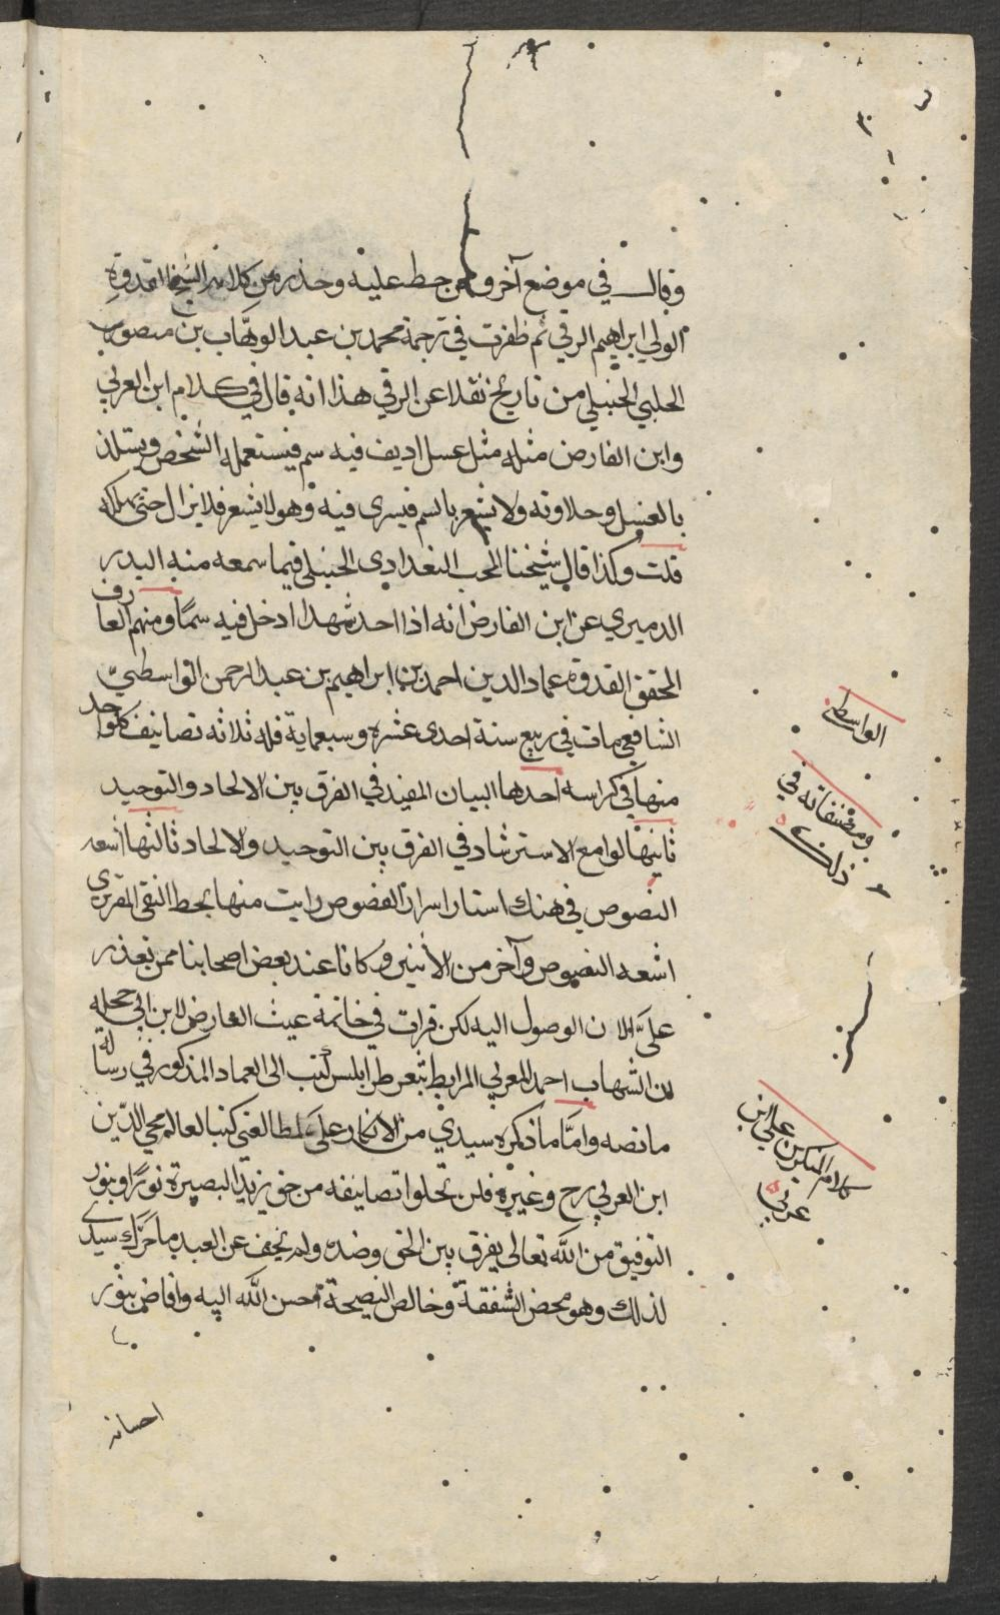 وقال في موضع آخر وممن حط عليه وحذر من كلامه الشيخ القدوة
الولي ابراهيم الرقي ثم ظفرت في ترجمة محمد بن عبد الوهّاب بن منصور
الحلبي الحنبلي من تاريخ نقلا عن الرقي هذا انه قال في كلام ابن العربي
وابن الفارض مثله مثل عسل اديف فيه سم فيستعمله الشخص ويستلذ
بالعسل وحلاوته ولا يشعر بالسم فيسرى فيه وهو لا يشعر فلا يزال حتى يهلكه
قلت وكذا قال شيخنا المحب البغدادي الحنبلي فيما سمعه منه البدر
الدميري عن ابن الفارض انه اذا احد شهدا ادخل فيه سمّا ومنهم العارف
المحقق القدوة عماد الدين احمد بن ابراهيم بن عبد الرحمن الواسطيّ
الشافعي مات في ربيع سنة احدى عشرة وسبعماية فله ثلاثة تصانيف كل واحد
منها في كراسه احدها البيان المفيد في الفرق بين الالحاد والتوحيد
ثانيها لوامع الاسترشاد في الفرق بين التوحيد والالحاد ثالثها اشعه
النصوص في هتك استار اسرار الفصوص رايت منها بخط التقي المقريزي
اشعه النصوص وآخر من الاثنين وكانا عند بعض اصحابنا ممن تعذر
عليَّ الان الوصول اليه لكن قرات في خاتمة غيث العارض لابن ابي حجله
ان الشهاب احمد المغربي المرابط بثغر طرابلس كتب الى العماد المذكور في رسالة
ما نصه وامّا ما ذكره سيدي من الانكار على مطالعي كتب العالم محي الدّين
ابن العربي رح وغيره فلن تخلوا تصانيفه من حق يزيد البصيرة نورًا وبنور
التوفيق من الله تعالى يفرق بين الحق وضده ولم يخف عن العبد ما حرّك سيدى
لذلك وهو محض الشفقة وخالص النصيحة احسن الله اليه وافاض بنور
احسانه
الواسطى
ومصنفاته في
ذلك
كلام المنكرين على ابن
عربي